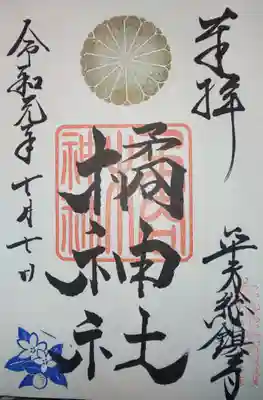 奉拝
平方総鎮守
橘神社
令和元年十月十日